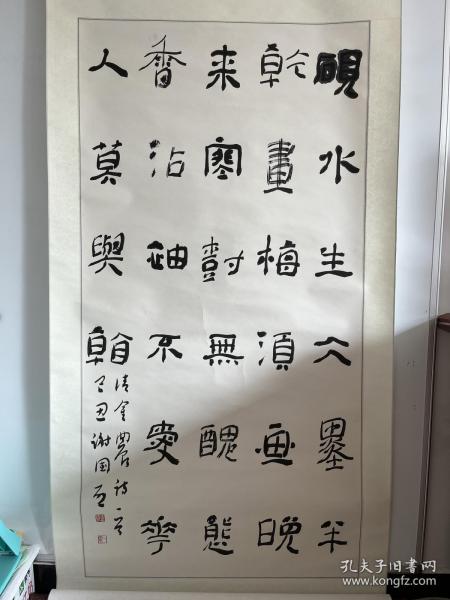 硯水生仌墨半
乾畫梅須画晚
来寒尌無醜態
香沾袖不愛華
人莫與看
清金農詩一首
己丑谢国
孔夫子旧书网
www.kongfz.com